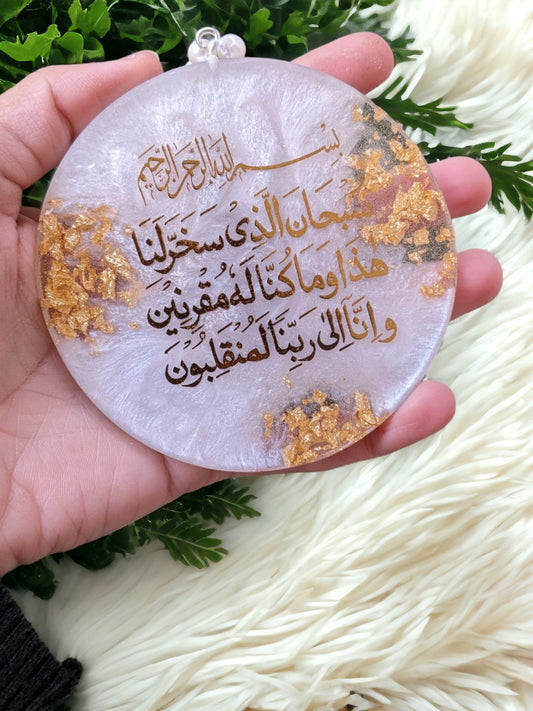 بسم الله الرحمن الرحيم
سُبْحَانَ الَّذِىْ سَخَّرَ لَنَا
هٰذَا وَمَا كُنَّا لَهٗ مُقْرِنِيْنَ
وَاِنَّآ اِلٰى رَبِّنَا لَمُنْقَلِبُوْنَ